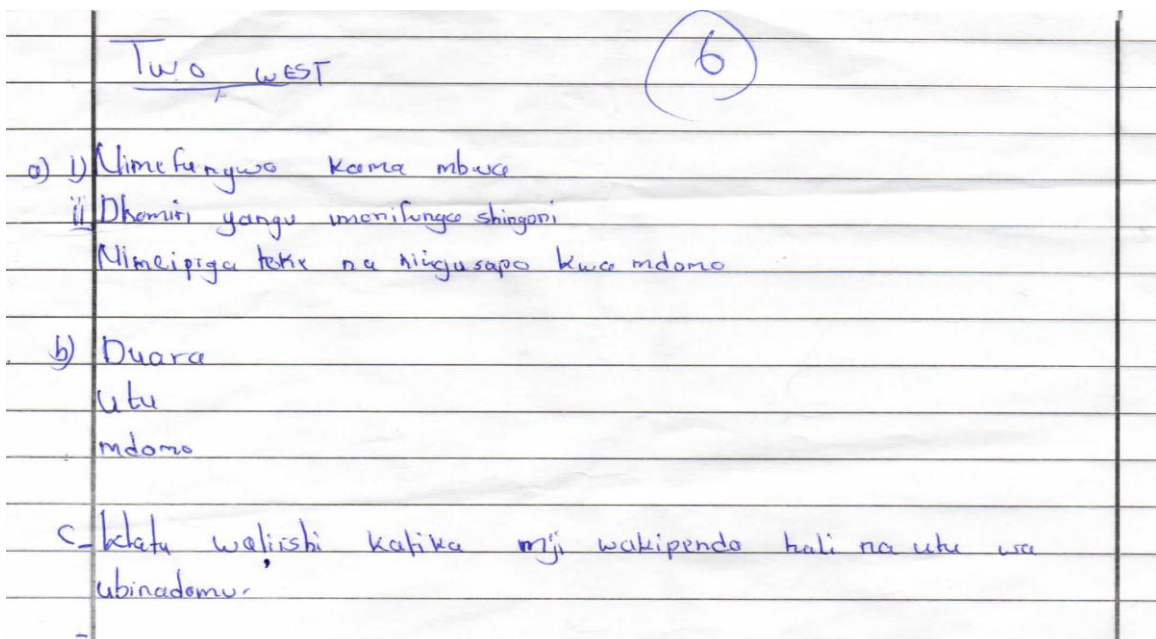 Two WEST
6
a) i) Nimefungwa kama mbwa
ii Dhamiri yangu imenifunga shingoni
Nimeipiga teke na kuigusa kwa mdomo
b) Duara
utu
mdomo
c- waliishi katika mji wakipenda hali na utu wa
ubinadamu.